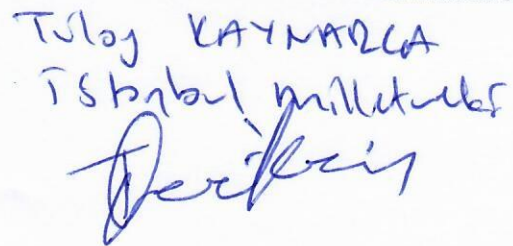 Tülay KAYNARCA
İstanbul Milletvekili